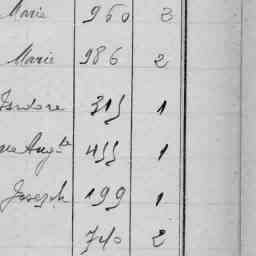 Marie 960 3
Marie 986 2
Isidore 315 1
Aug.te 455 1
Joseph 199 1
740 2